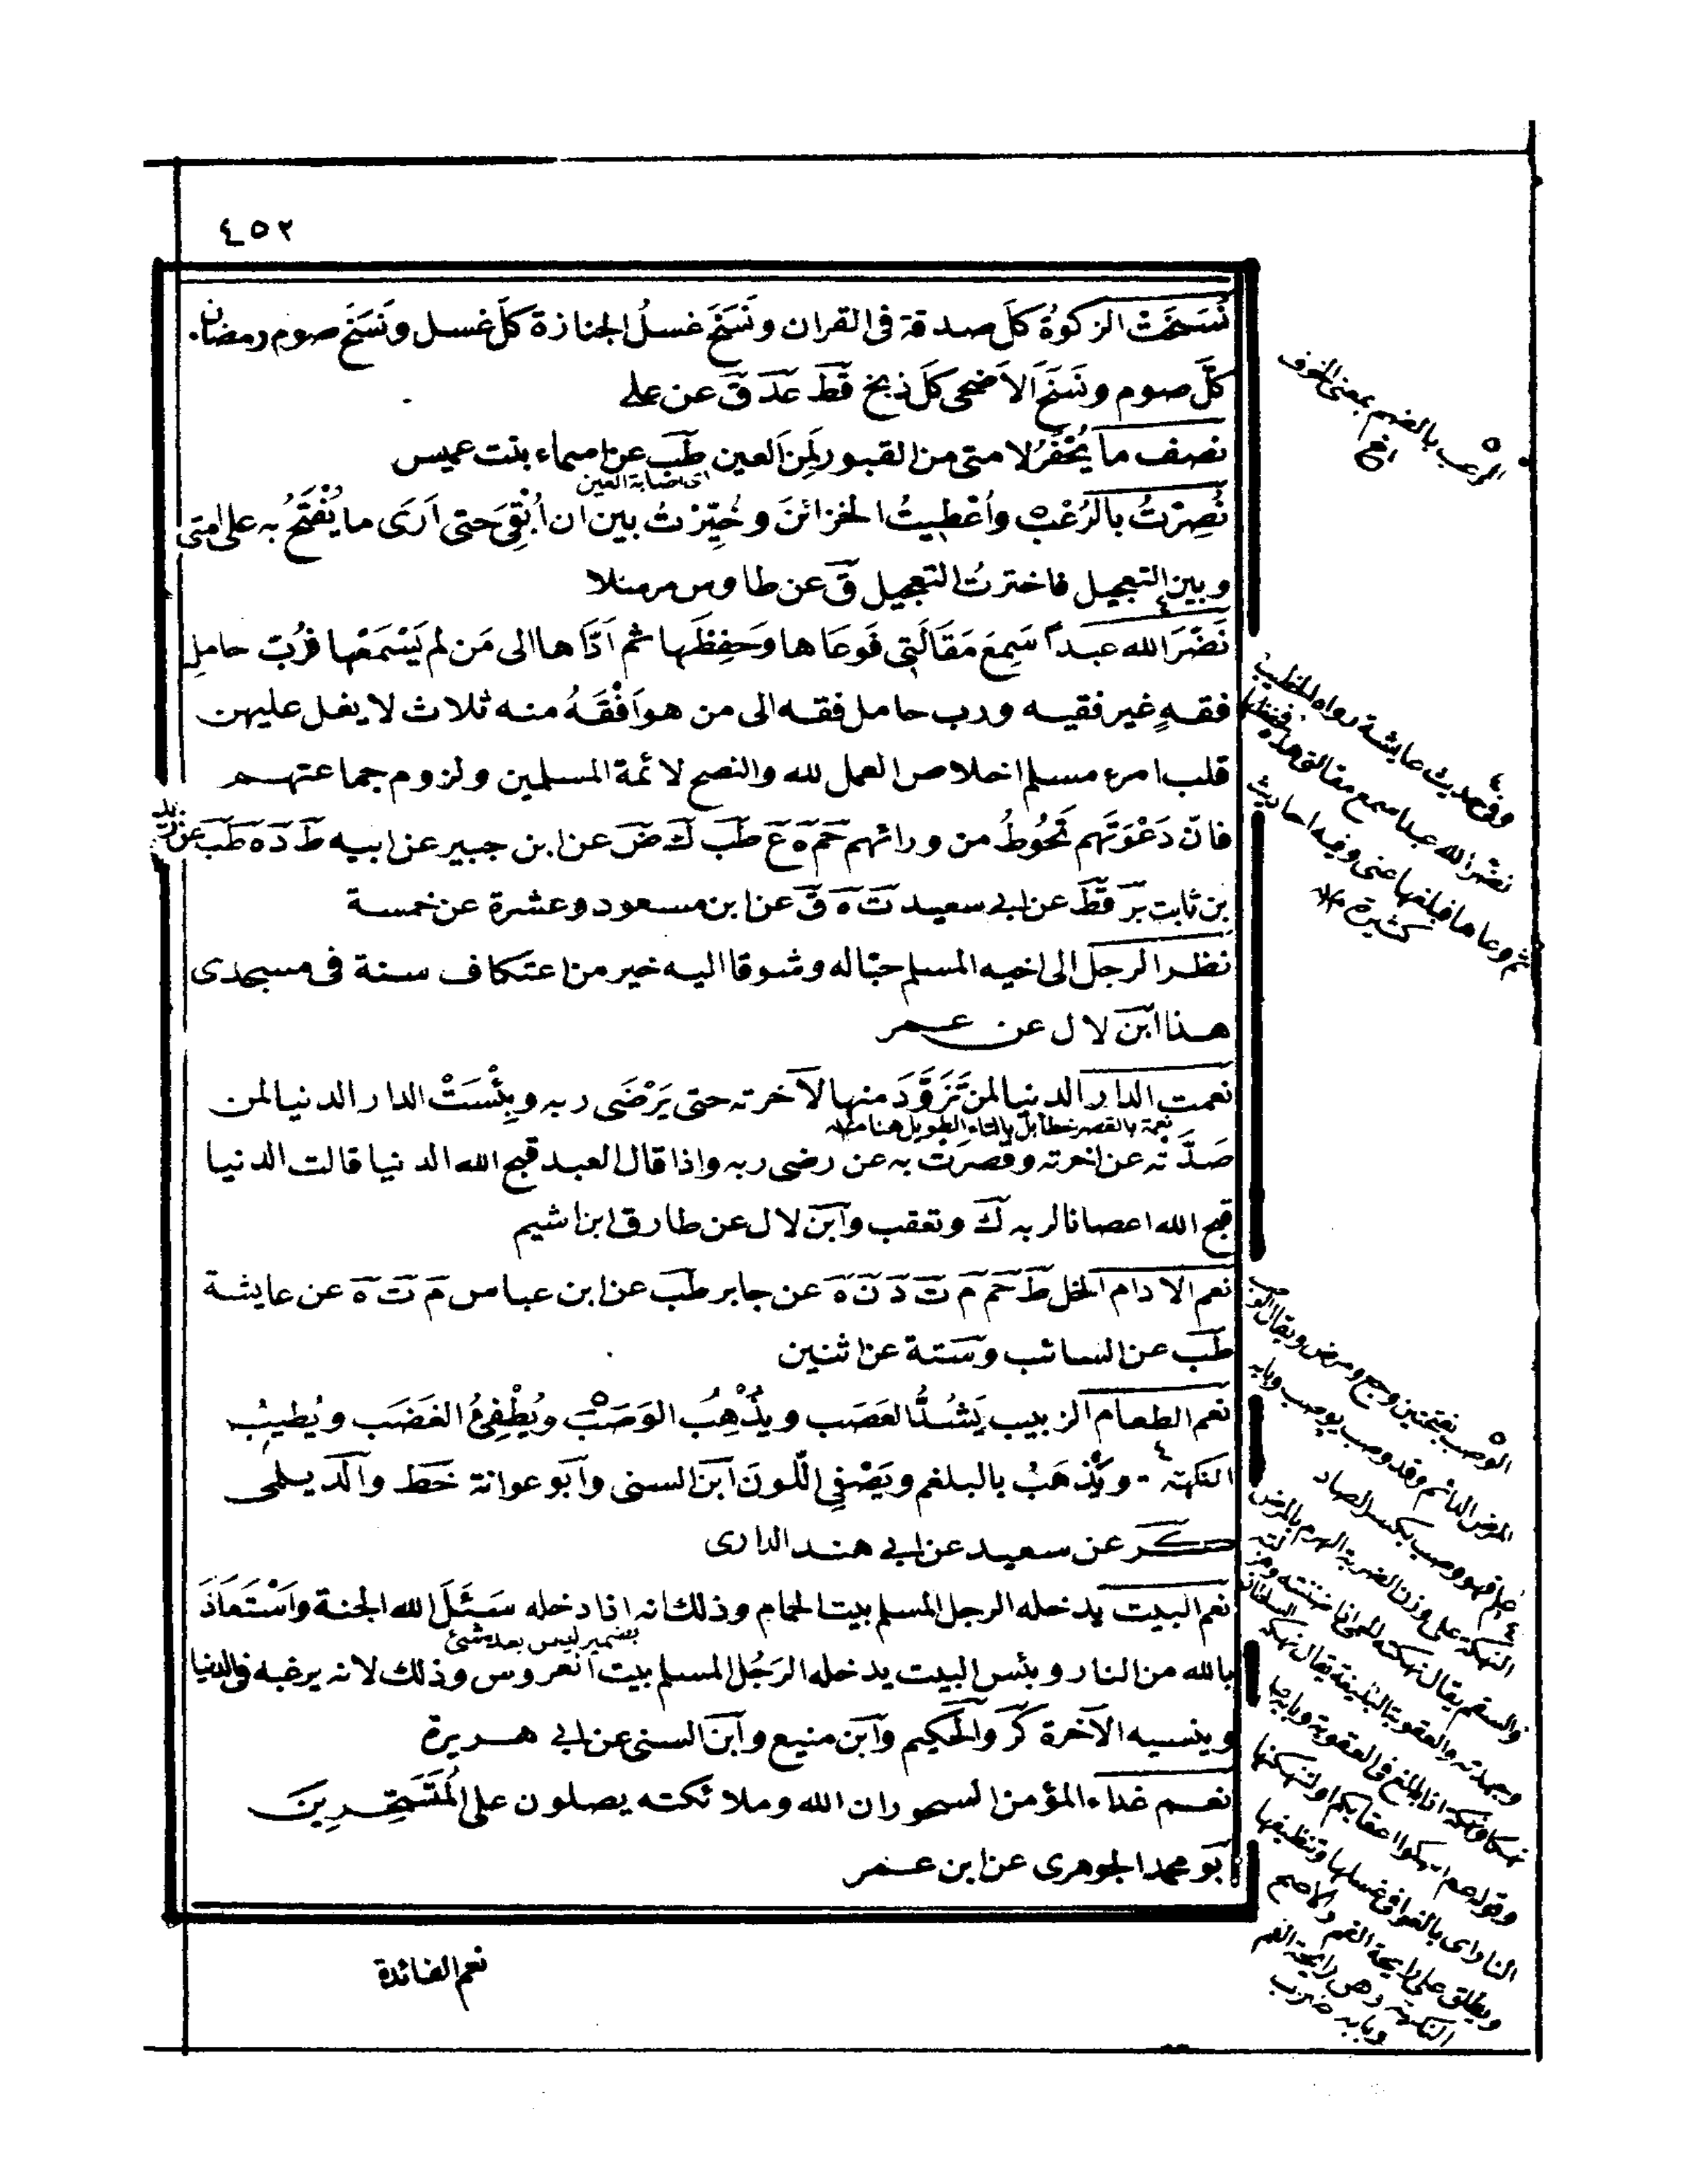 ٤٥٢
نُسَخَتْ الزكوةُ كلَّ صدقة فى القران ونَسَخَ غسلُ الجنازة كلَّ غسل ونَسَخَ صوم رمضان
كلَّ صوم ونَسَخَ الاَضحى كلَّ ذبح قط عد ق عن على
نصف ما يُحْفَرُ لامتى من القبور لَمِنَ العين طب عن اسماء بنت عميس
اى اصابة العين
نُصِرْتُ بالرُعْبِ واُعْطِيتُ الخزائنَ وخُيِّرْتُ بين ان اُبْقِىَ حتى اَرَى ما يُفْتَحُ به على امتى
وبين التعجيل فاخترتُ التعجيل ق عن طاوس مرسلا
نَضَّرَ الله عبداً سَمِعَ مَقَالَتِى فَوعَاها وحَفِظَها ثم اَدَّاها الى مَن لم يَسْمَعْها فرُبَّ حاملِ
فقهٍ غير فقيه ورب حامل فقه الى من هو اَفْقَهُ منه ثلاث لا يغل عليهن
قلب امرء مسلم اخلاص العمل لله والنصح لائمة المسلمين ولزوم جماعتهم
فانّ دَعْوَتَهم تَحُوطُ من ورائهم حم ه ع طب ك ض عن ابن جبير عن ابيه ط د ه طب عن زيد
بن ثابت بر قط عن ابى سعيد ت ه ق عن ابن مسعود وعشرة عن خمسة
نظر الرجل الى اخيه المسلم حبّا له وشوقا اليه خير من اعتكاف سنة فى مسجدى
هذا ابن لال عن عمر
نعمت الدار الدنيا لمن تَزَوَّدَ منها لآخرته حتى يَرْضَى ربه وبِئْسَتْ الدار الدنيا لمن
نعمة بالقصر خطأ بل بالتاء الطويل هنا
صَدَّتْه عن اخرته وقصرت به عن رضى ربه واذا قال العبد قبح الله الدنيا قالت الدنيا
قبح الله اعصانا لربه ك وتعقب وابن لال عن طارق ابن اشيم
نعم الادام الخل ط حم م ت د ن ه عن جابر طب عن ابن عباس م ت ه عن عايشة
طب عن السائب وستة عن اثنين
نعم الطعام الزبيب يَشُدُّ العَصَب ويذْهِبُ الوَصَبَ ويُطْفِئُ الغَضَب ويُطيبُ
النكهة ويَذْهَبُ بالبلغم ويَصْفِى اللون ابن السنى وابو عوانة خط والديلمى
كر عن سعيد عن ابى هند الدارى
نعم البيت يدخله الرجل المسلم بيت الحمام وذلك انه اذا دخله سَئَلَ الله الجنة واَسْتَعَاذَ
بضمير ليس بعده شئ
بالله من النار وبئس البيت يدخله الرَجُل المسلم بيت العروس وذلك لانه يرغبه فى الدنيا
وينسيه الآخرة كر والحكيم وابن منيع وابن السنى عن ابى هريرة
نعم غداء المؤمن السحور ان الله وملائكته يصلون على المُتَسَحِّرِينَ
ابو محمد الجوهرى عن ابن عمر
نعم الفائدة
الرعب بالضم بمعنى الخوف
وفى حديث عايشة رواه الخطيب
نضر الله عبدا سمع مقالتى هذه فحفظها
ثم وعاها فبلغها عنى وفيه احاديث
كثيرة
الوصب بفتحتين وجع ومرض ويقال الوصب
المرض الدائم وقد وصب يوصب وبابه
علم فهو وصب بكسر الصاد
النهكة على وزن الضربة الهرم بالمرض
والسقم يقال نهكته الحمى اذا
والعقوبة البليغة يقال نهكه السلطان
نهكا ونهكة اذا بالغ فى العقوبة وبابه
وقوله عم انهكوا اعقابكم او لتنهكنها
النار اى بالغوا فى غسلها وتنظيفها
ويطلق على رايحة الفم والاصح
النكهة وهى رايحة الفم
وبابه ضرب